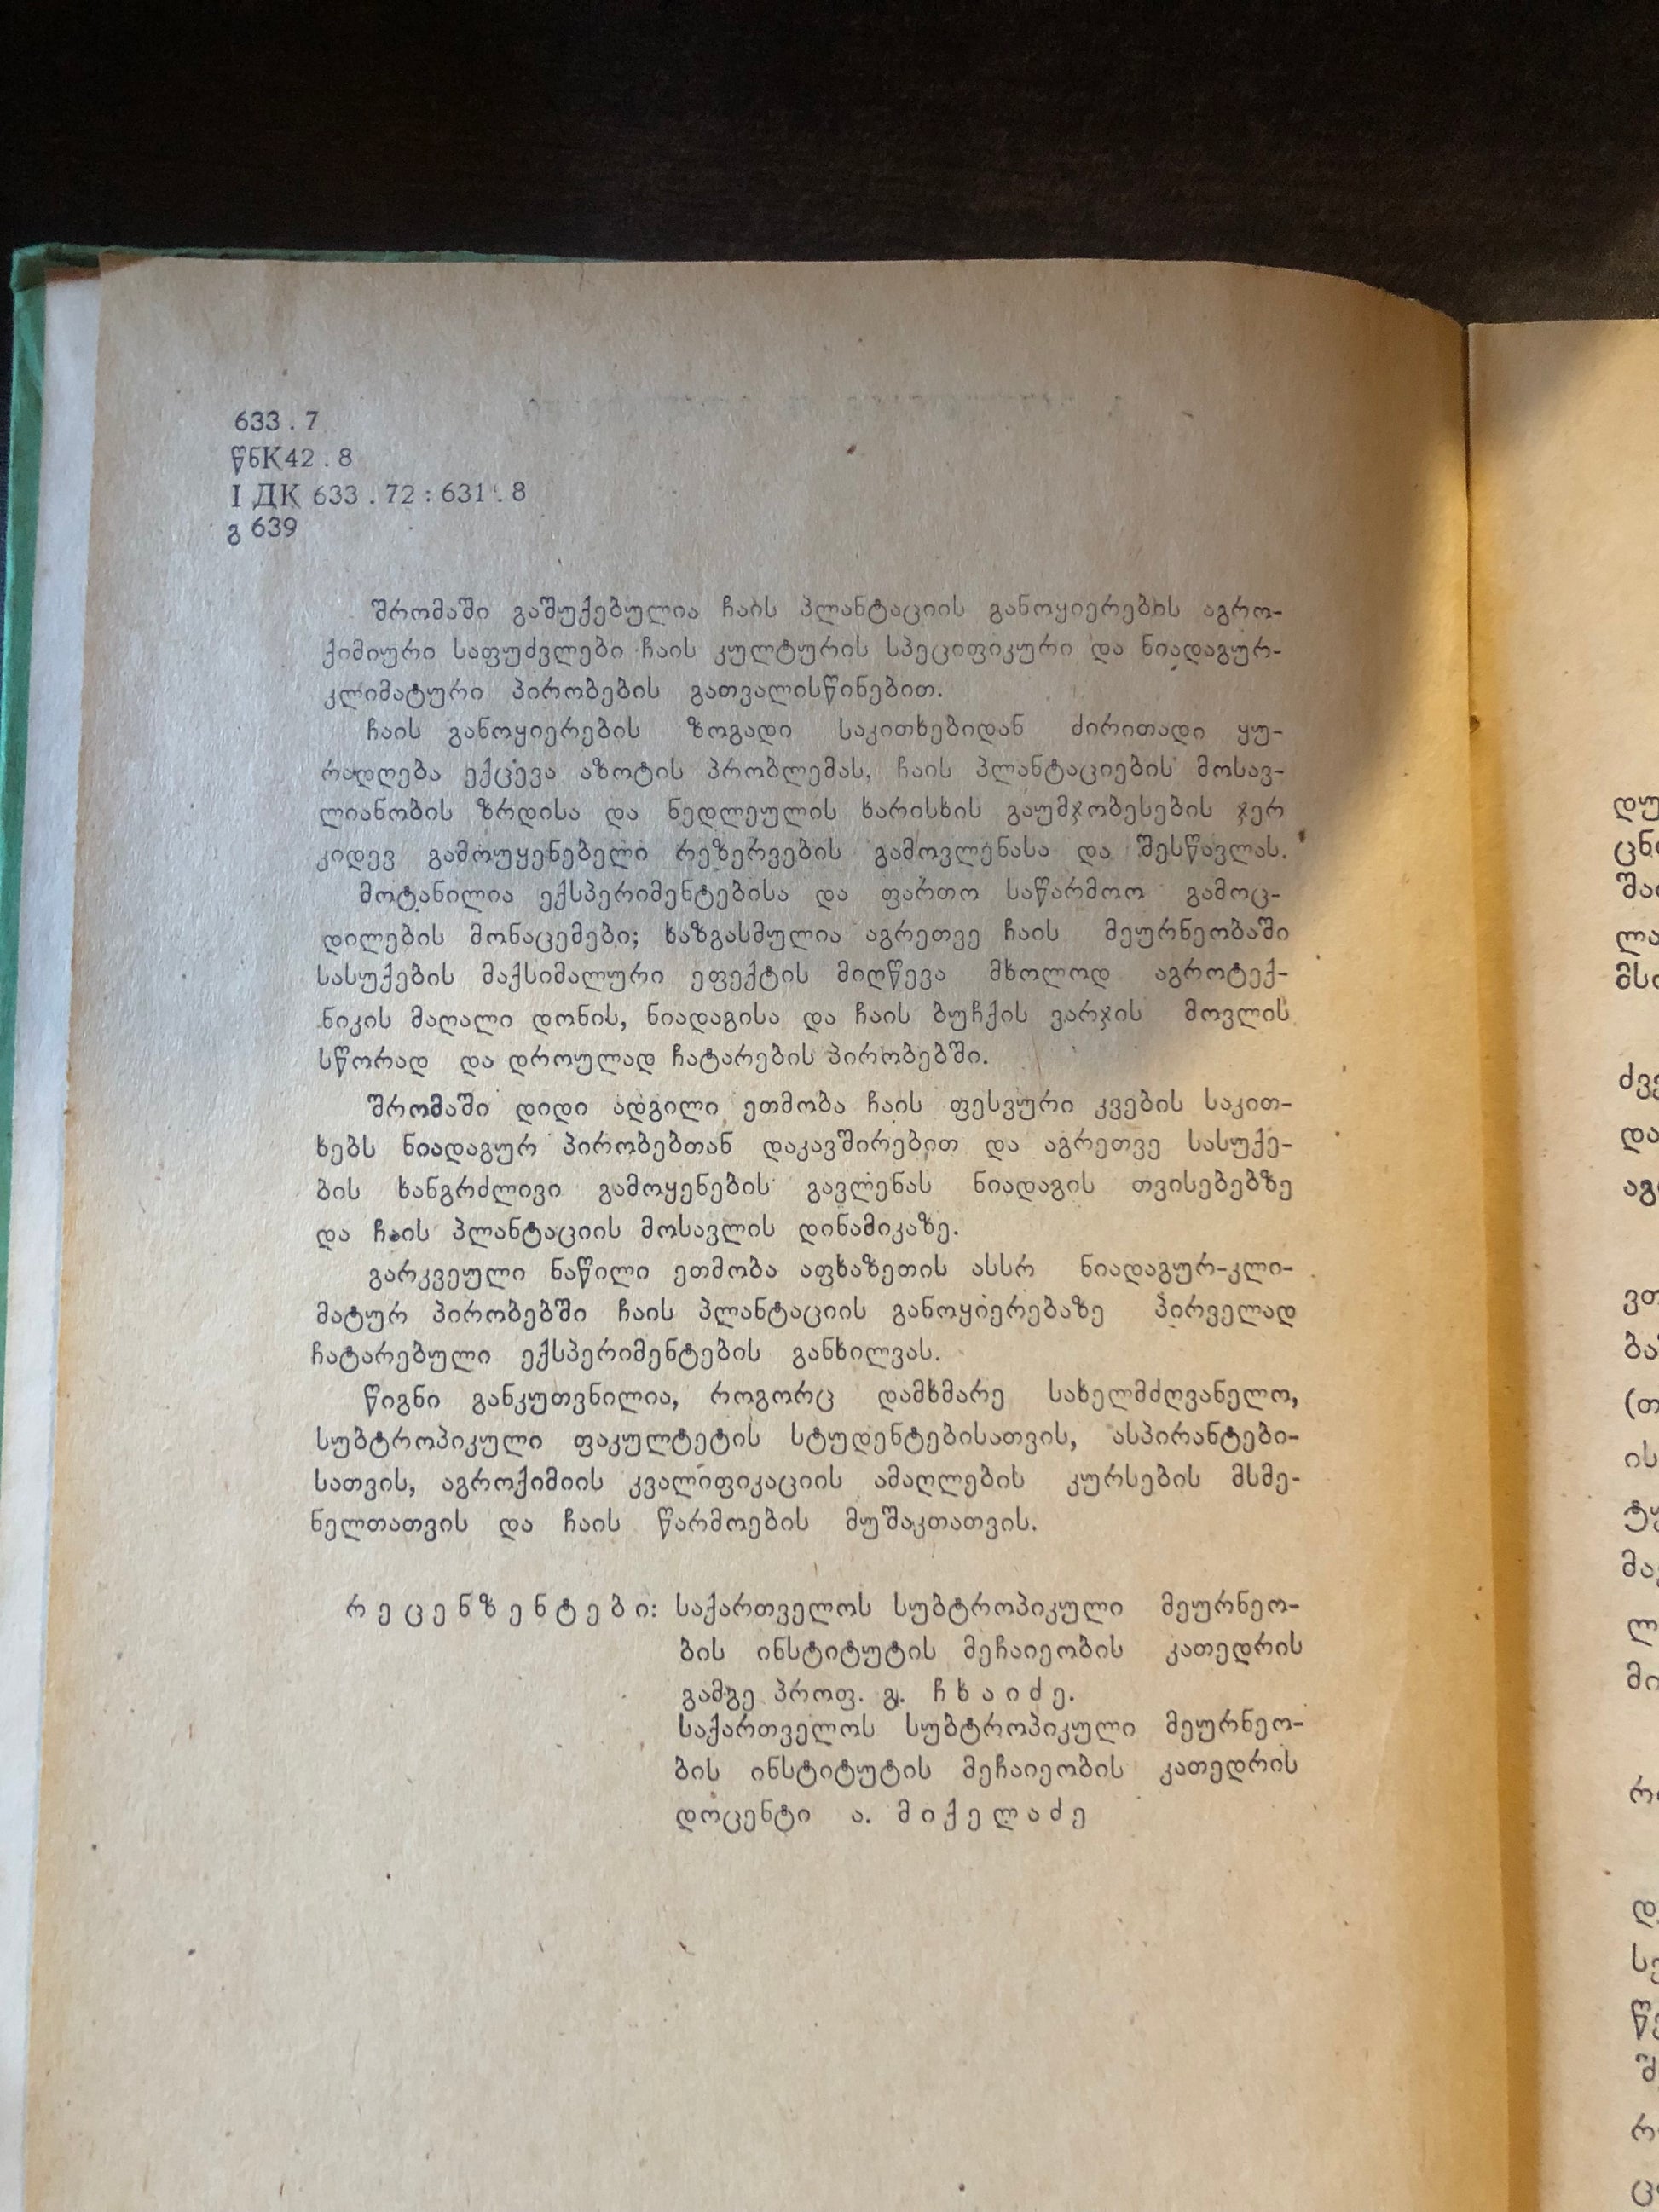 633.7
წნK42.8
I ДК 633.72:631.8
გ 639
შრომაში გაშუქებულია ჩაის პლანტაციის განოყიერების აგრო-
ქიმიური საფუძვლები ჩაის კულტურის სპეციფიკური და ნიადაგურ-
კლიმატური პირობების გათვალისწინებით.
ჩაის განოყიერების ზოგადი საკითხებიდან ძირითადი ყუ-
რადღება ექცევა აზოტის პრობლემას, ჩაის პლანტაციების მოსავ-
ლიანობის ზრდისა და ნედლეულის ხარისხის გაუმჯობესების ჯერ
კიდევ გამოუყენებელი რეზერვების გამოვლენასა და შესწავლას.
მოტანილია ექსპერიმენტებისა და ფართო საწარმოო გამოც-
დილების მონაცემები; ხაზგასმულია აგრეთვე ჩაის მეურნეობაში
სასუქების მაქსიმალური ეფექტის მიღწევა მხოლოდ აგროტექ-
ნიკის მაღალი დონის, ნიადაგისა და ჩაის ბუჩქის ვარჯის მოვლის
სწორად და დროულად ჩატარების პირობებში.
შრომაში დიდი ადგილი ეთმობა ჩაის ფესვური კვების საკით-
ხებს ნიადაგურ პირობებთან დაკავშირებით და აგრეთვე სასუქე-
ბის ხანგრძლივი გამოყენების გავლენას ნიადაგის თვისებებზე
და ჩაის პლანტაციის მოსავლის დინამიკაზე.
გარკვეული ნაწილი ეთმობა აფხაზეთის ასსრ ნიადაგურ-კლი-
მატურ პირობებში ჩაის პლანტაციის განოყიერებაზე პირველად
ჩატარებული ექსპერიმენტების განხილვას.
წიგნი განკუთვნილია, როგორც დამხმარე სახელმძღვანელო,
სუბტროპიკული ფაკულტეტის სტუდენტებისათვის, ასპირანტები-
სათვის, აგროქიმიის კვალიფიკაციის ამაღლების კურსების მსმე-
ნელთათვის და ჩაის წარმოების მუშაკთათვის.
რეცენზენტები: საქართველოს სუბტროპიკული მეურნეო-
ბის ინსტიტუტის მეჩაიეობის კათედრის
გამგე პროფ. გ. ჩხაიძე.
საქართველოს სუბტროპიკული მეურნეო-
ბის ინსტიტუტის მეჩაიეობის კათედრის
დოცენტი ა. მიქელაძე